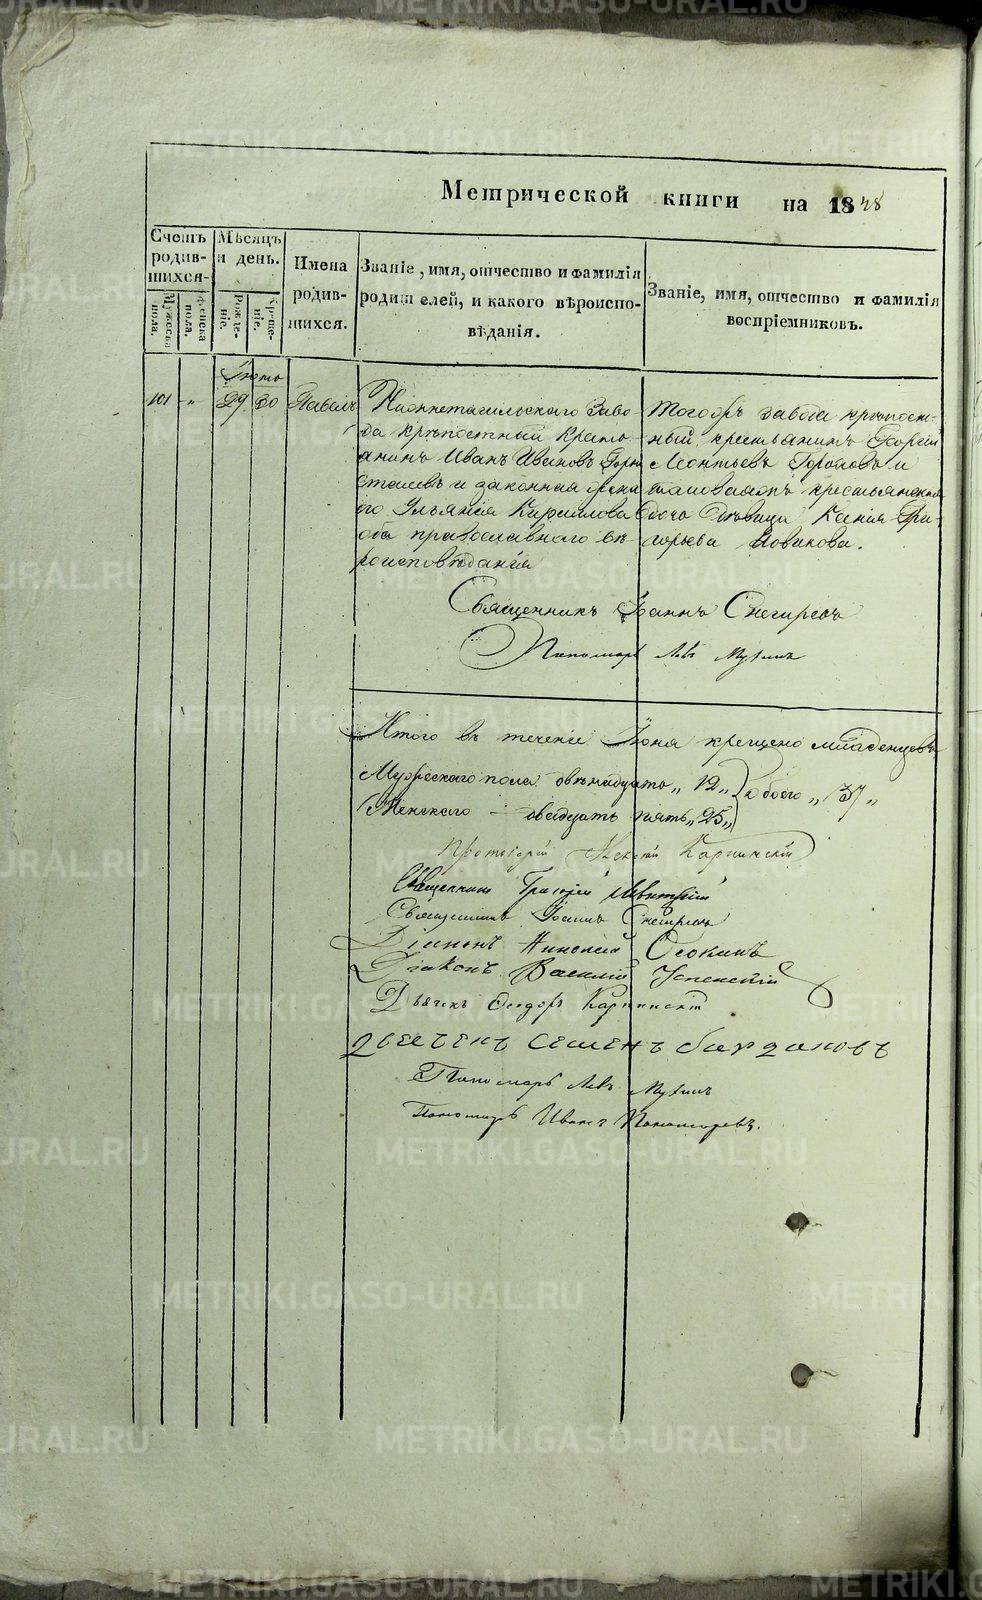 Метрической книги на 1848
Счетъ родив-шихся.
Мѣсяцъ и день.
Имена родив-шихся.
Званіе, имя, отчество и фамилія родителей, и какого вѣроиспо-вѣданія.
Званіе, имя, отчество и фамилія воспріемниковъ.
Мужеска пола.
Женска пола.
Рожде-ніе.
Креще-ніе.
101 " 29 30 Павелъ
Нижнетагильскаго Заво-
да крѣпостный крестья-
анинъ Иванъ Ивановъ
и законная жена
его Ульянія Кирилова
оба православнаго вѣ-
роисповѣданія
Тогожъ завода крѣпост-
ный крестьянинъ Георгій
Леонтьевъ и
крестьянская
дочь дѣвица Ксенія Гри-
горьева Новикова.
Священникъ Іоаннъ Снегиревъ
Пономарь Левъ Мухинъ
Итого въ теченіе Іюня крещено младенцевъ
Мужескаго пола двѣнадцать „ 12 „ обоего „ 37 „
Женскаго – двадцать пять „ 25 „
Протоіерей Карпинскій
Священникъ Григорій Левитскій
Священникъ Іоаннъ Снегиревъ
Діаконъ Николай Осокинъ
Діаконъ Василій Успенскій
Дьячекъ Ѳеодоръ Карпинскій
Дьячекъ Семенъ Богдановъ
Пономарь Левъ Мухинъ
Пономарь Иванъ Пономаревъ.
METRIKI.GASO-URAL.RU